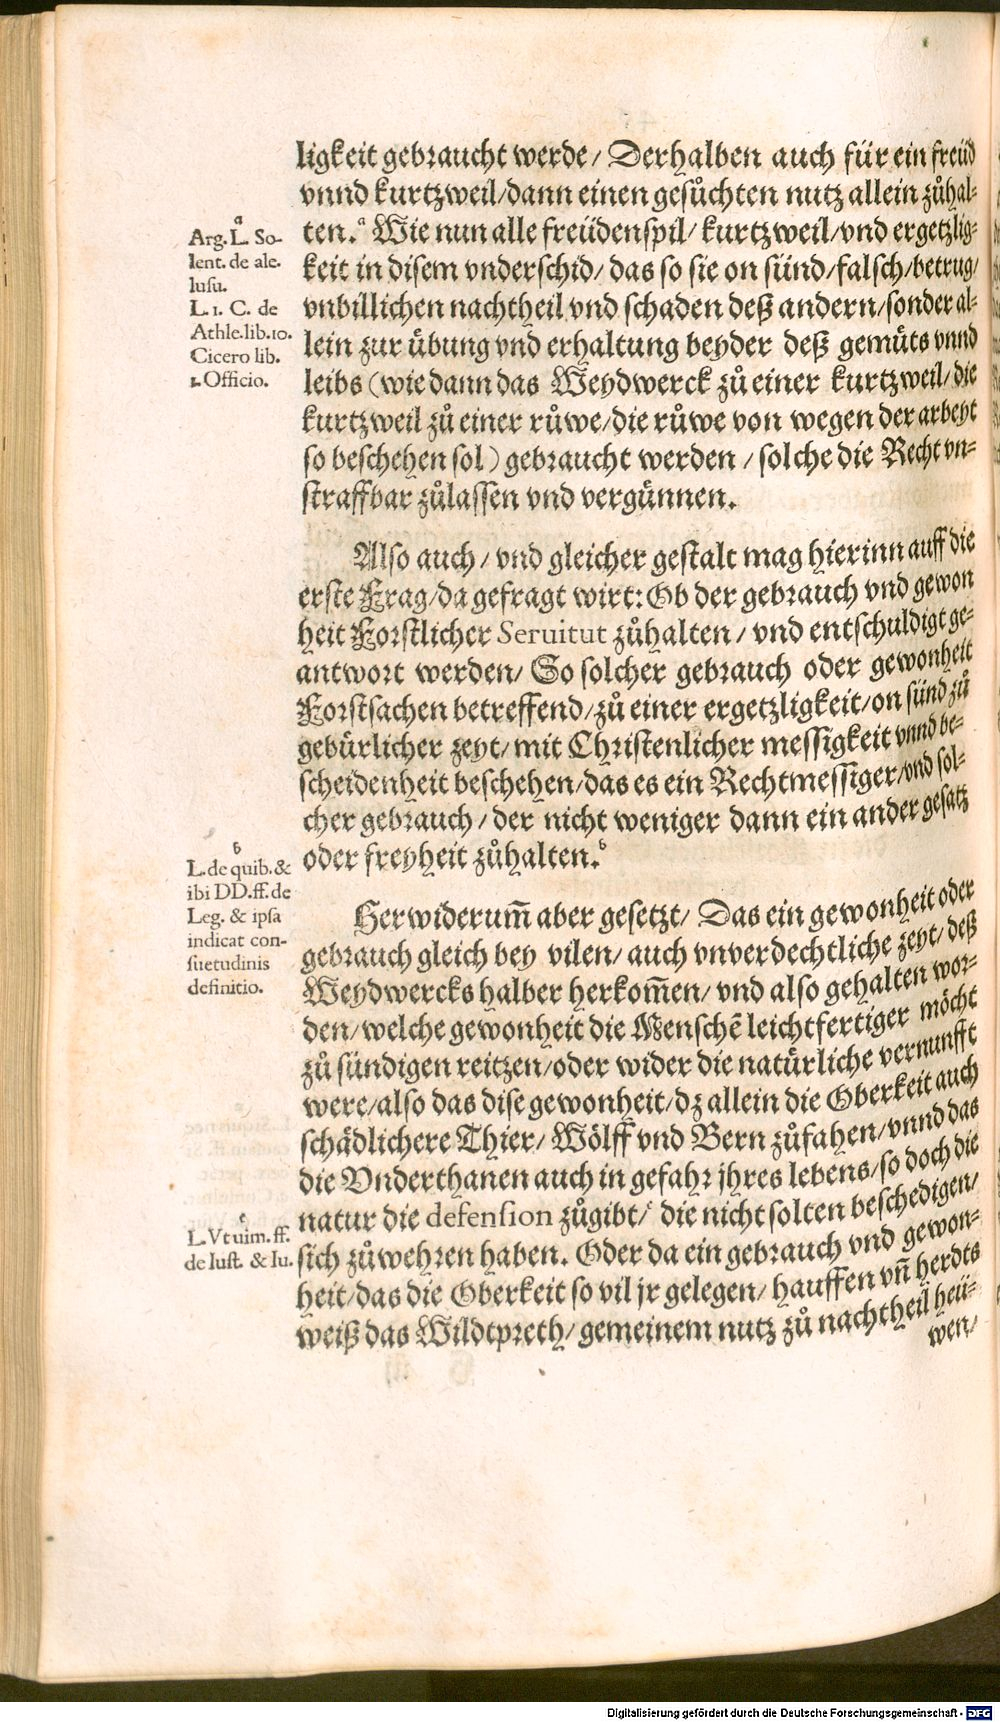 ligkeit gebraucht werde/ Derhalben auch für ein freüd
vnnd kurtzweil/dann einen gesůchten nutz allein zůhal-
ten.ᵃ Wie nun alle freüdenspil/ kurtzweil/vnd ergetzlig-
keit in disem vnderschid/ das so sie on sünd/falsch/betrug/
vnbillichen nachtheil vnd schaden deß andern/sonder al-
lein zur übung vnd erhaltung beyder deß gemüts vnnd
leibs (wie dann das Weydwerck zů einer kurtzweil/die
kurtzweil zů einer růwe/die růwe von wegen der arbeyt
so beschehen sol) gebraucht werden / solche die Recht vn-
straffbar zůlassen vnd vergünnen.
a
Arg. L. So-
lent. de ale.
lusu.
L. 1. C. de
Athle. lib. 10.
Cicero lib.
1. Officio.
Also auch / vnd gleicher gestalt mag hierinn auff die
erste Frag/da gefragt wirt: Ob der gebrauch vnd gewon
heit Forstlicher Seruitut zůhalten / vnd entschuldigt ge-
antwort werden/ So solcher gebrauch oder gewonheit
Forstsachen betreffend/zů einer ergetzligkeit/on sünd zů
gebürlicher zeyt/ mit Christenlicher messigkeit vnnd be-
scheidenheit beschehen/das es ein Rechtmessiger/vnd sol-
cher gebrauch / der nicht weniger dann ein ander gesatz
oder freyheit zůhalten.ᵇ
b
L. de quib. &
ibi DD. ff. de
Leg. & ipsa
indicat con-
suetudinis
definitio.
Herwiderum̃ aber gesetzt/ Das ein gewonheit oder
gebrauch gleich bey vilen/ auch vnverdechtliche zeyt/ deß
Weydwercks halber herkom̃en/ vnd also gehalten wor-
den/welche gewonheit die Menschẽ leichtfertiger möcht
zů sündigen reitzen/oder wider die natürliche vernunfft
were/also das dise gewonheit/dz allein die Oberkeit auch
schädlichere Thier/ Wölff vnd Bern zůfahen/vnnd das
die Vnderthanen auch in gefahr jhres lebens/so doch die
natur die defension zůgibt/ᶜ die nicht solten beschedigen/
sich zůwehren haben. Oder da ein gebrauch vnd gewon-
heit/das die Oberkeit so vil jr gelegen/ hauffen vn̄ herdts
weiß das Wildtpreth/ gemeinem nutz zů nachtheil heü-
wen/
c
L. Vt uim. ff.
de Iust. & Iu.
Digitalisierung gefördert durch die Deutsche Forschungsgemeinschaft - DFG